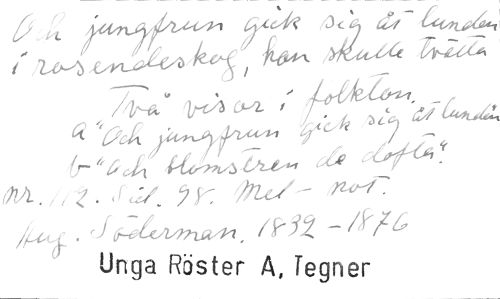 Och jungfrun gick sig åt lunden
i rosendeskog, hon skulle tvätta
Två visor i folkton.
a "Och jungfrun gick sig åt lunden
b "Och blomstren de dofta".
nr. 112. Sid. 98. Mel - not.
Aug. Söderman. 1832 - 1876
Unga Röster A. Tegner